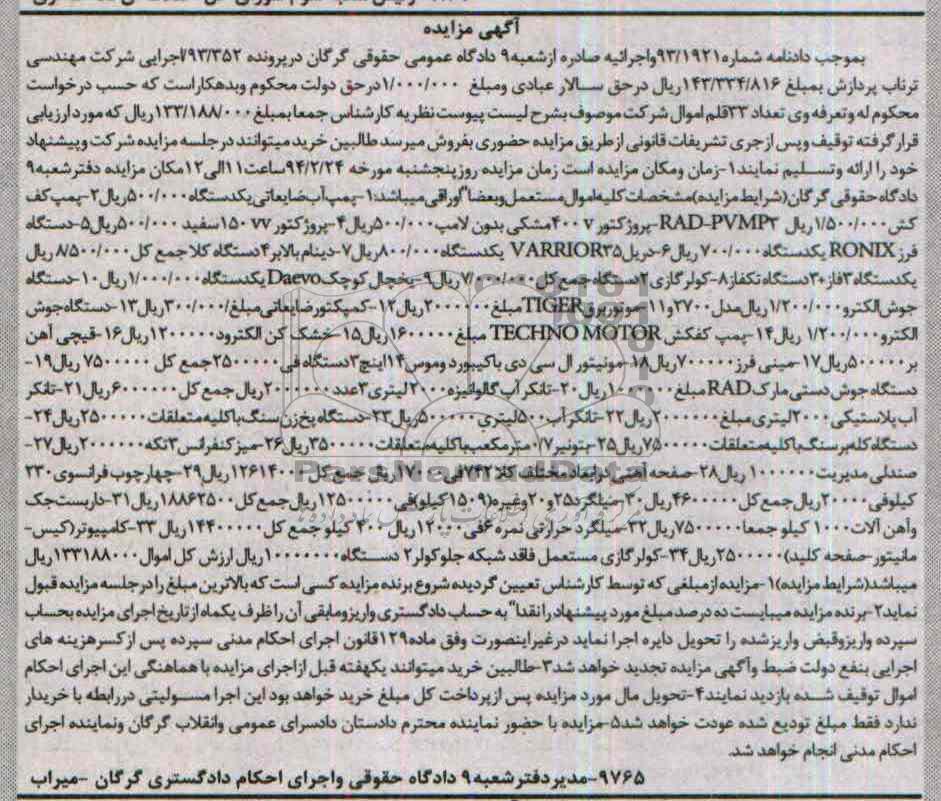 آگهی مزایده
بموجب دادنامه شماره ۹۳/۱۹۲۱واجرائیه صادره ازشعبه۹ دادگاه عمومی حقوقی گرگان درپرونده ۹۳/۳۵۲/اجرایی شرکت مهندسی
ترناب پردازش بمبلغ ۱۴۳/۳۳۴/۸۱۶ریال درحق سالار عبادی ومبلغ ۱/۰۰۰/۰۰۰درحق دولت محکوم وبدهکاراست که حسب درخواست
محکوم له وتعرفه وی تعداد ۳۳قلم اموال شرکت موصوف بشرح لیست پیوست نظریه کارشناس جمعا بمبلغ ۱۳۳/۱۸۸/۰۰۰ریال که مورد ارزیابی
قرارگرفته توقیف وپس ازجری تشریفات قانونی ازطریق مزایده حضوری بفروش میرسد طالبین خرید میتوانند درجلسه مزایده شرکت وپیشنهاد
خود را ارائه وتسلیم نمایند۱-زمان ومکان مزایده است زمان مزایده روزپنجشنبه مورخه ۹۴/۲/۲۴ساعت۱۱الی۱۲مکان مزایده دفترشعبه۹
دادگاه حقوقی گرگان(شرایط مزایده)مشخصات کلیه اموال مستعمل وبعضا"اوراقی میباشند:۱-پمپ آب ضایعاتی یکدستگاه۵۰۰/۰۰۰ریال۲-پمپ کف
کش۱/۵۰۰/۰۰۰ریال RAD-PVMP۳-پروژکتور ۴۰۰۷مشکی بدون لامپ۵۰۰/۰۰۰ریال۴-پروژکتور ۱۵۰۷۷سفید ۵۰۰/۰۰۰ریال۵-دستگاه
فرز RONIX یکدستگاه۷۰۰/۰۰۰ ریال۶-دریل VARRIOR۳۵ یکدستگاه۸۰۰/۰۰۰ریال۷-دینام بالابر۴دستگاه کلا جمع کل ۸/۵۰۰/۰۰۰ریال
یکدستگاه ۳فاز۳۰دستگاه تکفاز۸-کولرگازی ۲دستگاه جمع کل ۷/۰۰۰/۰۰۰ریال۹-یخچال کوچکDaevo یکدستگاه۱/۰۰۰/۰۰۰ریال۱۰-دستگاه
جوش الکترو۱/۲۰۰/۰۰۰ریال مدل ۲۷۰۰و۱۱-موتوربرقTIGER مبلغ۲۰۰۰۰۰۰ریال۱۲-کمپکتورضایعاتی مبلغ۳۰۰/۰۰۰ریال۱۳-دستگاه جوش
الکترو۱/۲۰۰/۰۰۰ ریال۱۴-پمپ کفکش TECHNO MOTOR مبلغ۱۶۰۰۰۰۰ریال۱۵-خشک کن الکترود۱۲۰۰۰۰۰ریال۱۶-قیچی آهن
بر۵۰۰۰۰۰ریال۱۷-مینی فرز۷۰۰۰۰۰ریال۱۸-مونیتور ال سی دی باکیبورد وموس ۱۴اینچ۳دستگاه فی۲۵۰۰۰۰۰جمع کل ۷۵۰۰۰۰۰ ریال۱۹-
دستگاه جوش دستی مارک RAD مبلغ ریال۲۰-تانکر آب گالوانیزه ۲۰۰۰لیتری۳عدد ریال جمع کل ۶۰۰۰۰۰۰ریال۲۱-تانکر
آب پلاستیکی۲۰۰۰لیتری مبلغ۲۰۰۰۰۰۰ریال۲۲-تانکرآب۵۰۰لیتری۵۰۰۰۰۰ریال۲۳-دستگاه پخ زن سنگ باکلیه متعلقات ۲۵۰۰۰۰۰ریال۲۴-
دستگاه کله برسنگ باکلیه متعلقات ۷۵۰۰۰۰۰ریال۲۵-بتونیر۰/۷مترمکعب باکلیه متعلقات ۳۵۰۰۰۰۰ریال۲۶-میزکنفرانس۳تکه۲۰۰۰۰۰۰ریال۲۷-
صندلی مدیریت۱۰۰۰۰۰۰ ریال۲۸-صفحه آهنی درابعاد مختلف کلا۷۴۲ ریال جمع کل ۱۲۶۱۴۰۰۰ریال۲۹-چهارچوب فرانسوی ۲۳۰
کیلوفی ۲۰۰۰۰ریال جمع کل ۴۶۰۰۰۰۰ریال۳۰-میلگرد۲۵و۲۰وغیره(۱۵۰۹کیلو)فی ۱۲۵۰۰ریال جمع کل ۱۸۸۶۲۵۰۰ ریال۳۱-داربست جک
وآهن آلات۱۰۰۰ کیلو جمعا۷۵۰۰۰۰۰ ریال۳۲-میلگرد حرارتی نمره ۶فی ۱۲۰۰۰ریال ۴۰۰ کیلو جمع کل ۱۴۴۰۰۰۰۰ ریال ۳۳-کامپیوتر(کیس-
مانیتور-صفحه کلید)۲۵۰۰۰۰۰ریال۳۴-کولرگازی مستعمل فاقد شبکه جلو کولر۲ دستگاه۱۰۰۰۰۰۰۰ریال ارزش کل اموال ۱۳۳۱۸۸۰۰۰ریال
میباشد(شرایط مزایده)۱-مزایده ازمبلغی که توسط کارشناس تعیین گردیده شروع برنده مزایده کسی است که بالاترین مبلغ را درجلسه مزایده قبول
نماید۲-برنده مزایده میبایست ده درصد مبلغ مورد پیشنهاد را نقدا" به حساب دادگستری واریزومابقی آن را ظرف یکماه ازتاریخ اجرای مزایده بحساب
سپرده واریزوقبض واریزشده را تحویل دایره اجرا نماید درغیراینصورت وفق ماده۱۲۹قانون اجرای احکام مدنی سپرده پس ازکسرهزینه های
اجرایی بنفع دولت ضبط وآگهی مزایده تجدید خواهد شد۳-طالبین خرید میتوانند یکهفته قبل ازاجرای مزایده با هماهنگی این اجرای احکام
اموال توقیف شده بازدید نمایند۴-تحویل مال مورد مزایده پس ازپرداخت کل مبلغ خرید خواهد بود این اجرا مسئولیتی دررابطه با خریدار
ندارد فقط مبلغ تودیع شده عودت خواهد شد۵-مزایده با حضور نماینده محترم دادستان دادسرای عمومی وانقلاب گرگان ونماینده اجرای
احکام مدنی انجام خواهد شد.
۹۷۶۵-مدیردفترشعبه۹ دادگاه حقوقی واجرای احکام دادگستری گرگان -میراب